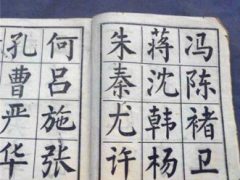 冯陈褚卫
蒋沈韩杨
朱秦尤许
何吕施张
孔曹严华